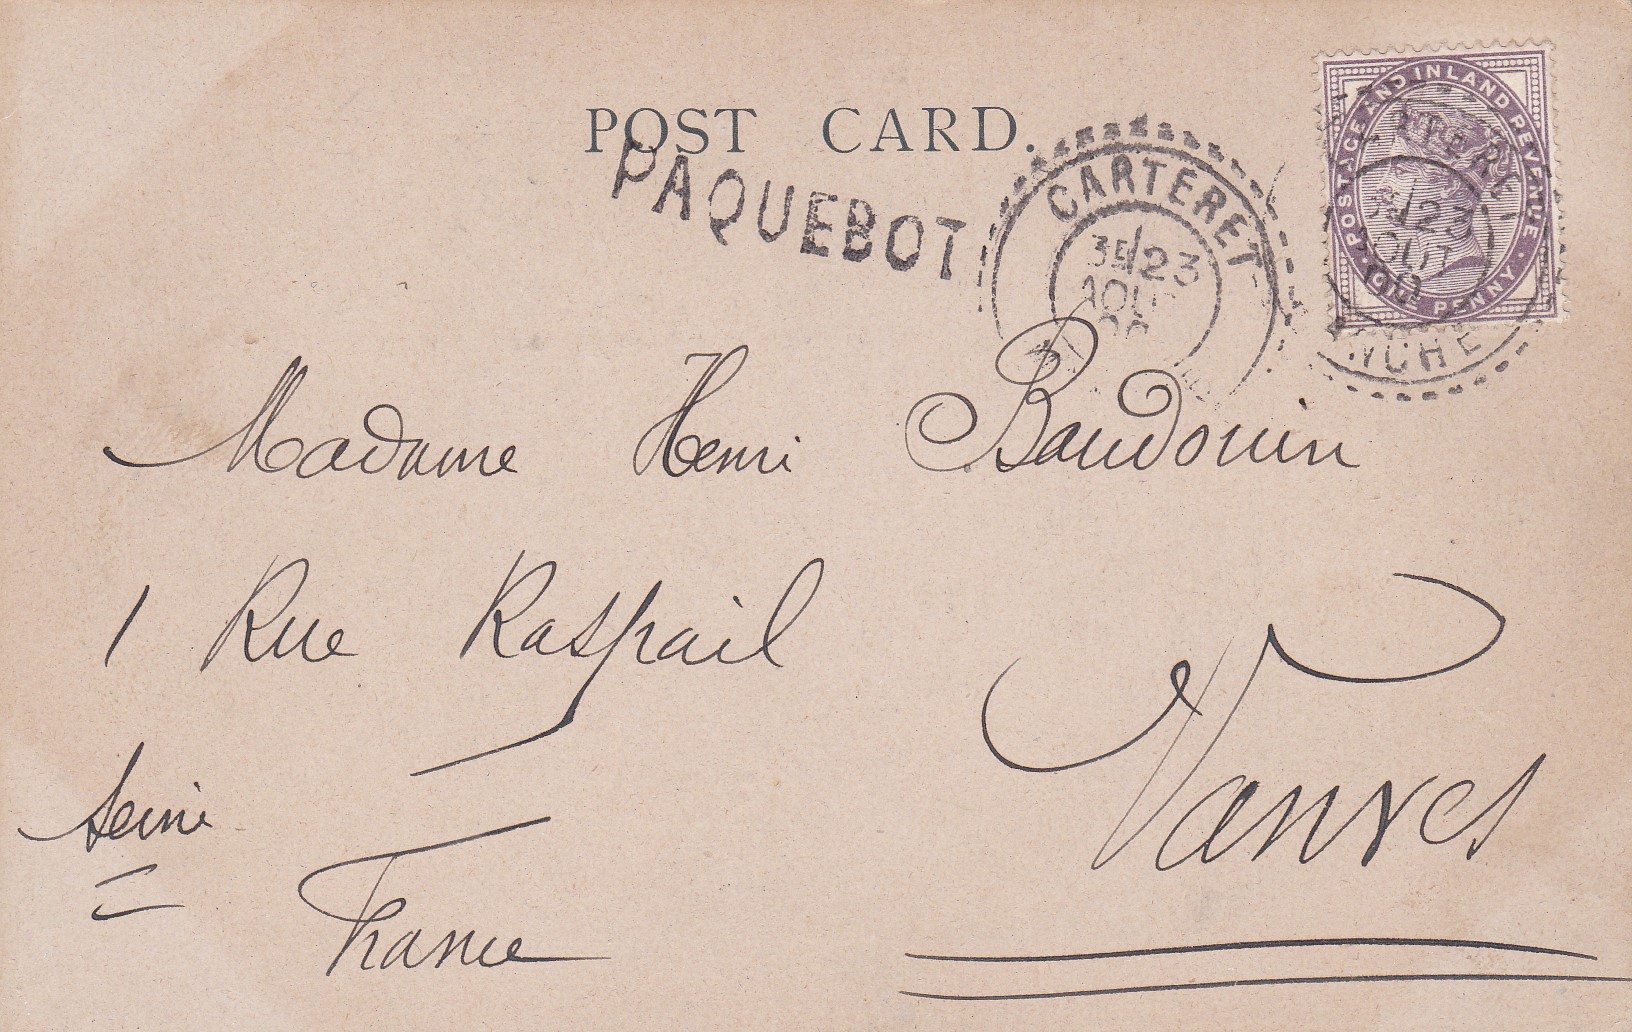 POST CARD.
PAQUEBOT
CARTERET
3E/23
AOUT
POSTAGE AND INLAND REVENUE
ONE PENNY
23
AOUT
00
Madame Henri Baudouin
1 Rue Raspail
Vanves
Seine
France